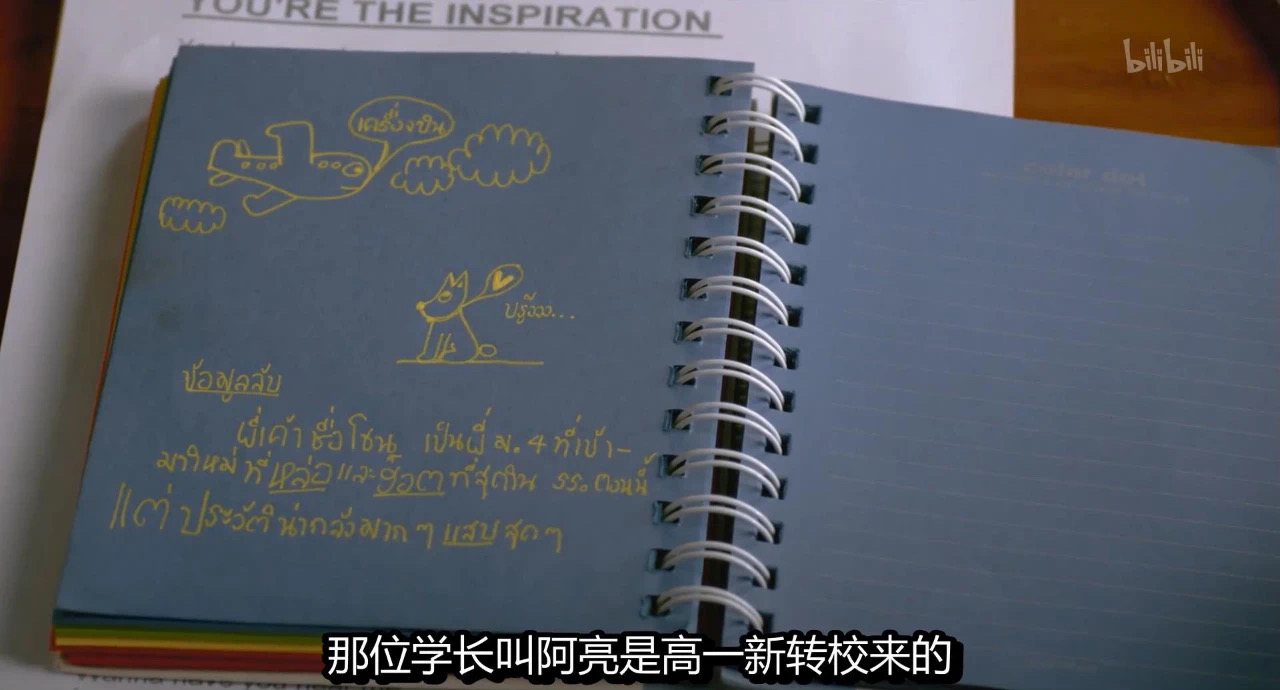 YOU'RE THE INSPIRATION
bilibili
เครื่องบิน
ปรู๊ววว...
ข้อมูลลับ
พี่เค้าชื่อโชน เป็นพี่ ม.4 ที่เข้า-
มาใหม่ ที่หล่อและฮ็อตที่สุดใน รร.ตอนนี้
แต่ประวัติน่ากลัวมากๆ แสบสุดๆ
那位学长叫阿亮是高一新转校来的